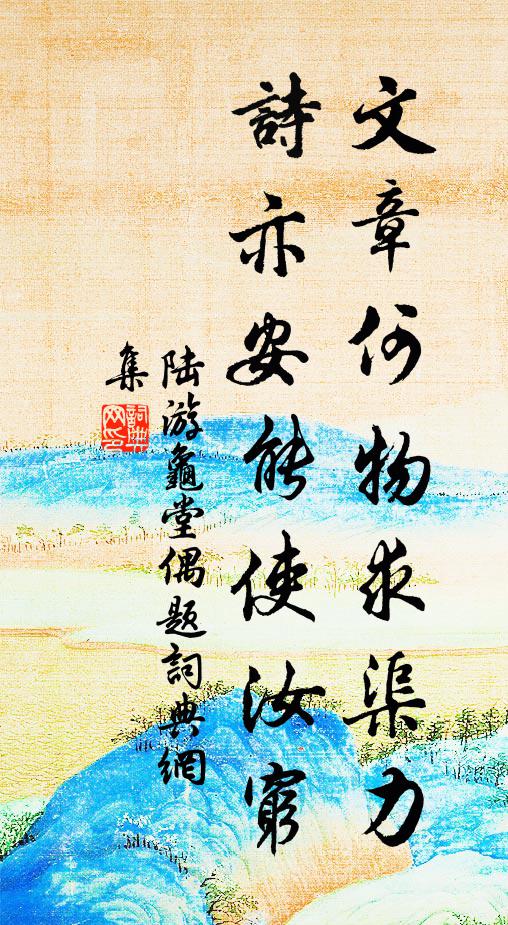 文章何物求渠力
詩亦安能使汝窮
陸游龜堂偶題詞典網
集
詞典網印